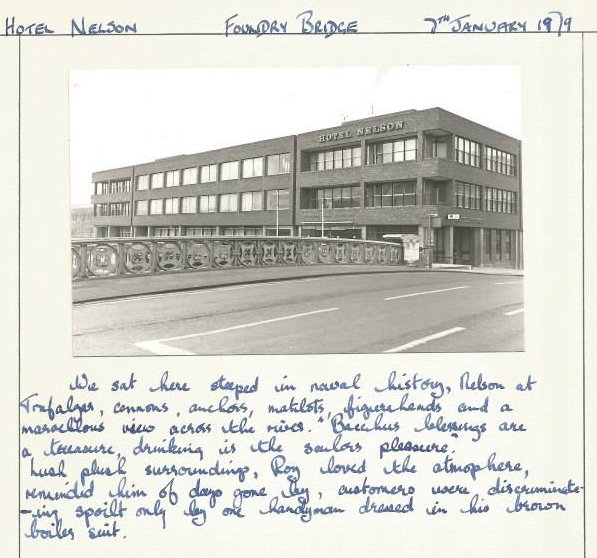 HOTEL NELSON FOUNDRY BRIDGE 7TH JANUARY 1979
HOTEL NELSON
We sat here steeped in naval history, Nelson at
Trafalger, cannons, anchors, matilots, figureheads and a
marvellous view across the river. "Bacchus blessings are
a treasure, drinking is the sailors pleasure."
Lush plush surroundings, Roy loved the atmosphere,
reminded him of days gone by, customers were discriminate-
-ing spoilt only by one handyman dressed in his brown
boiler suit.